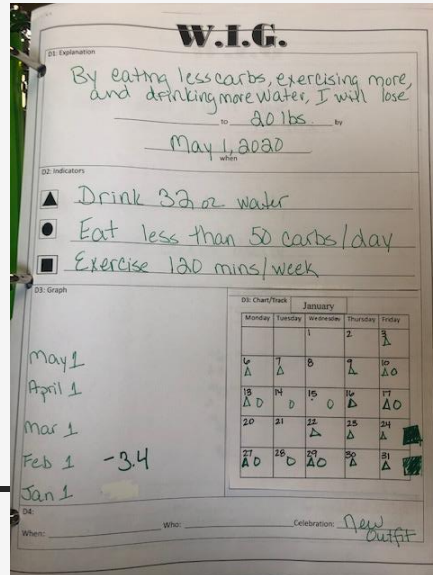 W.I.G.
D1: Explanation
By eating less carbs, exercising more,
and drinking more water, I will lose
to 20 lbs. by
May 1, 2020
when
D2: Indicators
Drink 32 oz water
Eat less than 50 carbs/day
Exercise 120 mins/week
D3: Graph
May 1
April 1
Mar 1
Feb 1 -3.4
Jan 1
D3: Chart/Track January
Monday Tuesday Wednesday Thursday Friday
1 2 3
6 7 8 9 10
13 14 15 16 17
20 21 22 23 24
27 28 29 30 31
D4:
When: Who: Celebration: New
Outfit